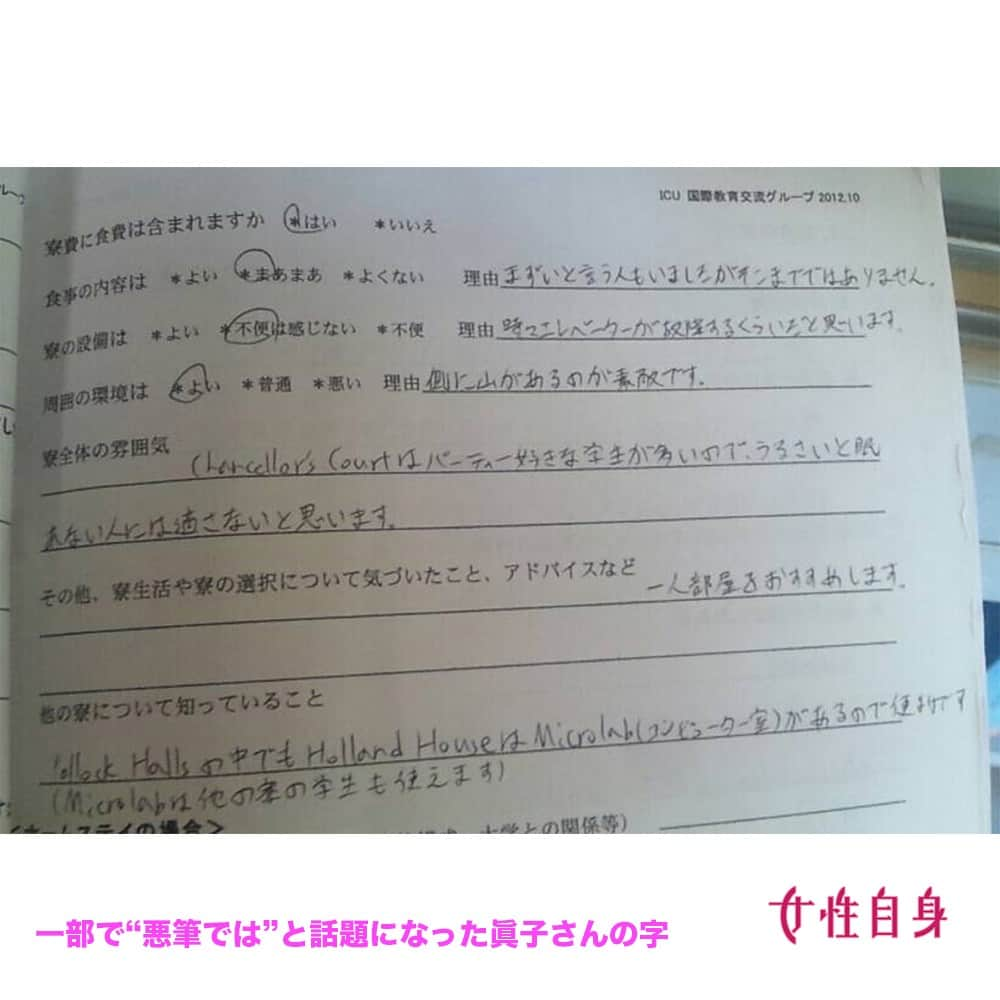 ICU 国際教育交流グループ 2012.10
寮費に食費は含まれますか *はい *いいえ
食事の内容は *よい *まあまあ *よくない 理由 まずいと言う人もいましたがそこまでではありません。
寮の設備は *よい *不便は感じない *不便 理由 時々エレベーターが故障するくらいだと思います。
周囲の環境は *よい *普通 *悪い 理由 側に山があるのが素敵です。
寮全体の雰囲気 Chancellor's Courtはパーティー好きな学生が多いので、うるさいと眠
れない人には適さないと思います。
その他、寮生活や寮の選択について気づいたこと、アドバイスなど 一人部屋をおすすめします。
他の寮について知っていること
ollock Hallsの中でもHolland HouseはMicrolab(コンピューター室)があるので便利です
(Microlabは他の寮の学生も使えます)
ームステイの場合>
の関係等)
一部で“悪筆では”と話題になった眞子さんの字
女性自身